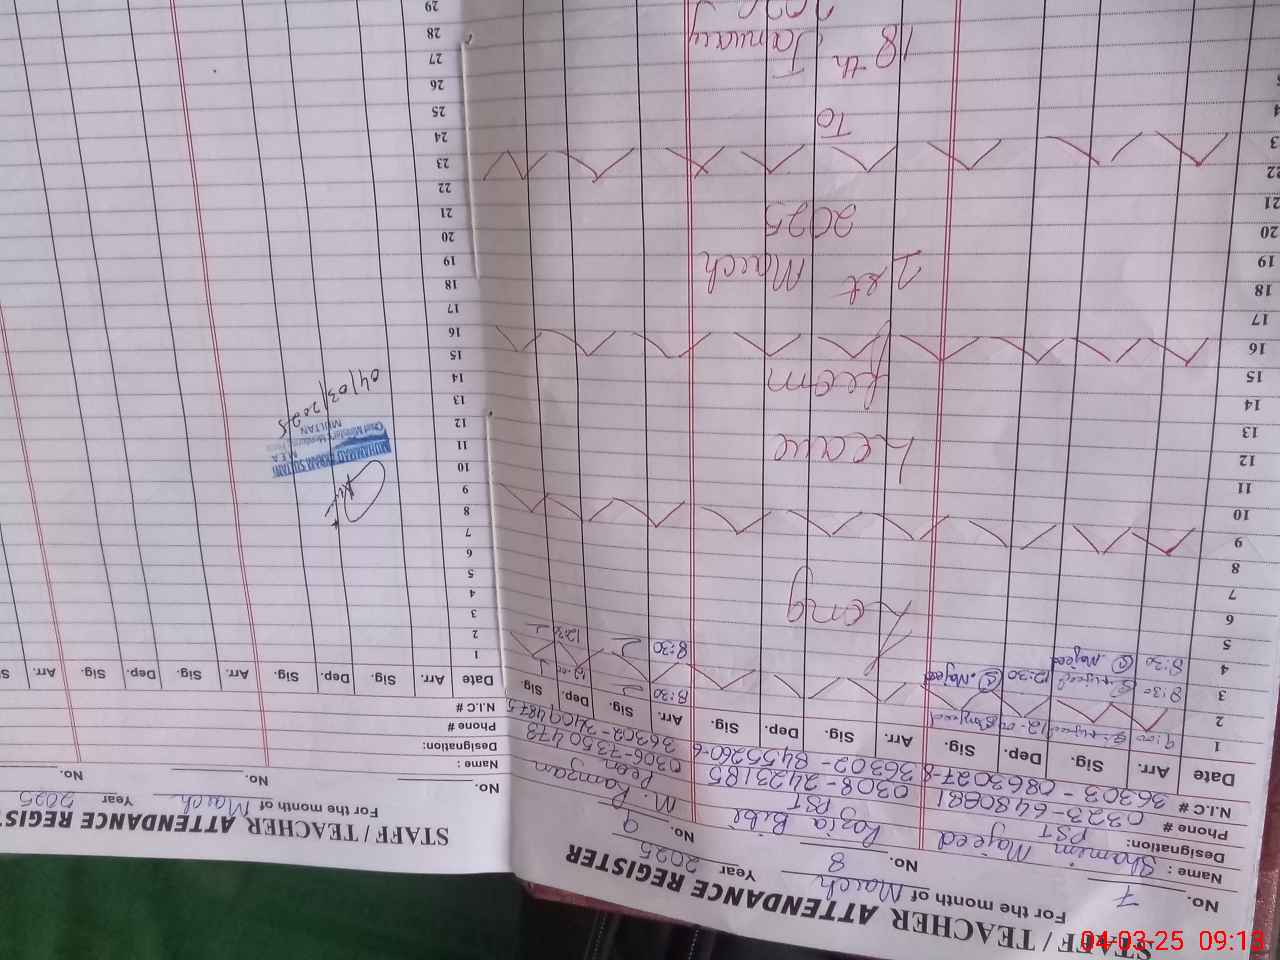 STAFF / TEACHER ATTENDANCE REGISTER
For the month of March Year 2025
No. 7 No. 8 No. 9
Name : Shamim Majeed Razia Bibi M. Ramzan
Designation: PST PST Peon
Phone # 0323-6480881 0308-2423185 0306-7350478
N.I.C # 36303-0863027-8 36302-8455260-6 36302-2409487-5
Date Arr. Sig. Dep. Sig. Arr. Sig. Dep. Sig. Arr. Sig. Dep. Sig.
1 9:00 12:00
2
3 8:30 12:30 S. Majeed 8:30 12:00
4 8:30 S. Majeed 8:30 12:30
5
6 Long
7
8
9
10
11
12 Leave
13
14
15 from
16
17
18
19 1st March
20
21 2025
22
23
To
18th
January
STAFF / TEACHER ATTENDANCE REGIS
For the month of March Year 2025
No. No. No.
Name :
Designation:
Phone #
N.I.C #
Date Arr. Sig. Dep. Sig. Arr. Sig. Dep. Sig. Arr.
1
2
3
4
5
6
7
8
9
10
11
12
13
14
15
16
17
18
19
20
21
22
23
24
25
26
27
28
29
MUHAMMAD AKBAR SULTANI
M.E.A
Chief Minister's Monitoring Force
MULTAN
04/03/2025
04-03-25 09:13